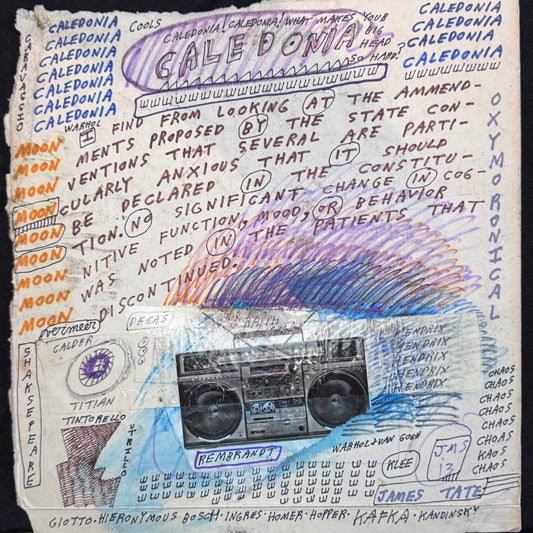 CALEDONIA
CALEDONIA
CALEDONIA
CALEDONIA
CALEDONIA
CALEDONIA
CALEDONIA
COOLS
CALEDONIA! CALEDONIA! WHAT MAKES YOUR
BIG
HEAD
SO HARD?
CALEDONIA
CALEDONIA
CALEDONIA
CALEDONIA
CALEDONIA
CARAVAGGIO
WARHOL
I FIND FROM LOOKING AT THE AMMEND-
MENTS PROPOSED BY THE STATE CON-
VENTIONS THAT SEVERAL ARE PARTI-
CULARLY ANXIOUS THAT IT SHOULD
BE DECLARED IN THE CONSTITU-
TION. NO SIGNIFICANT CHANGE IN COG-
NITIVE FUNCTION, MOOD, OR BEHAVIOR
WAS NOTED IN THE PATIENTS THAT
DISCONTINUED.
MOON
MOON
MOON
MOON
MOON
MOON
MOON
MOON
OXYMORONICAL
Vermeer
DEGAS
RALPH
CALDER
SHAKSEPEARE
TITIAN
TINTORELLO
UTRILLO
HENDRIX
HENDRIX
HENDRIX
HENDRIX
HENDRIX
CHAOS
CHAOS
CHAOS
CHAOS
CHOAS
KAOS
CHAOS
REMBRANDT
WARHOL & VAN GOGH
KLEE
JMS
13
JAMES TATE
GIOTTO · HIERONYMOUS BOSCH · INGRES · HOMER · HOPPER · KAFKA · KANDINSKY